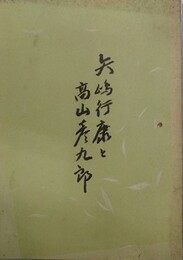 矢嶋行康と
高山彦九郎